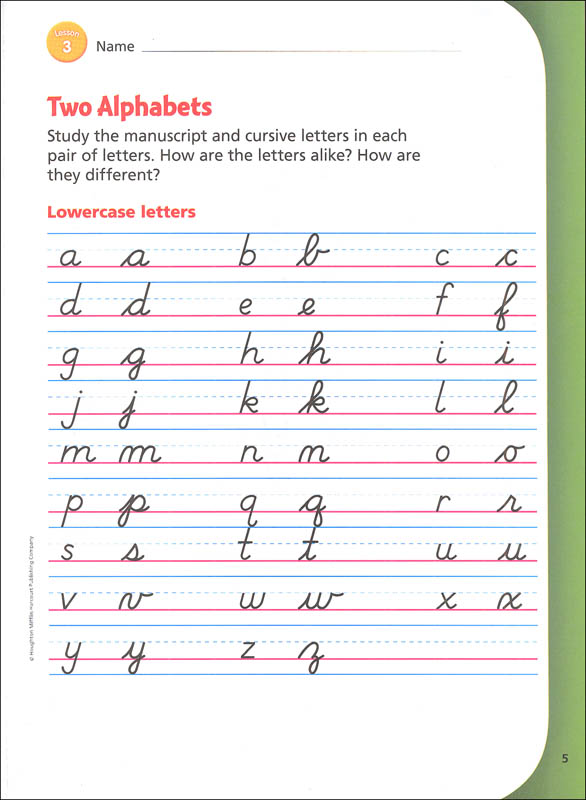 Lesson
3
Name
Two Alphabets
Study the manuscript and cursive letters in each
pair of letters. How are the letters alike? How are
they different?
Lowercase letters
a a b b c c
d d e e f f
g g h h i i
j j k k l l
m m n n o o
p p q q r r
s s t t u u
v v w w x x
y y z z
© Houghton Mifflin Harcourt Publishing Company
5